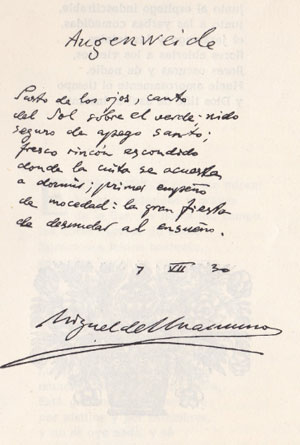 Augenweide
Pasto de los ojos, canto
del Sol sobre el verde: nido
seguro de apego santo;
fresco rincón escondido
donde la cuita se acuesta
a dormir; primer empeño
de mocedad: la gran fiesta
de desnudar al ensueño.
7 VII 30
Miguel de Unamuno